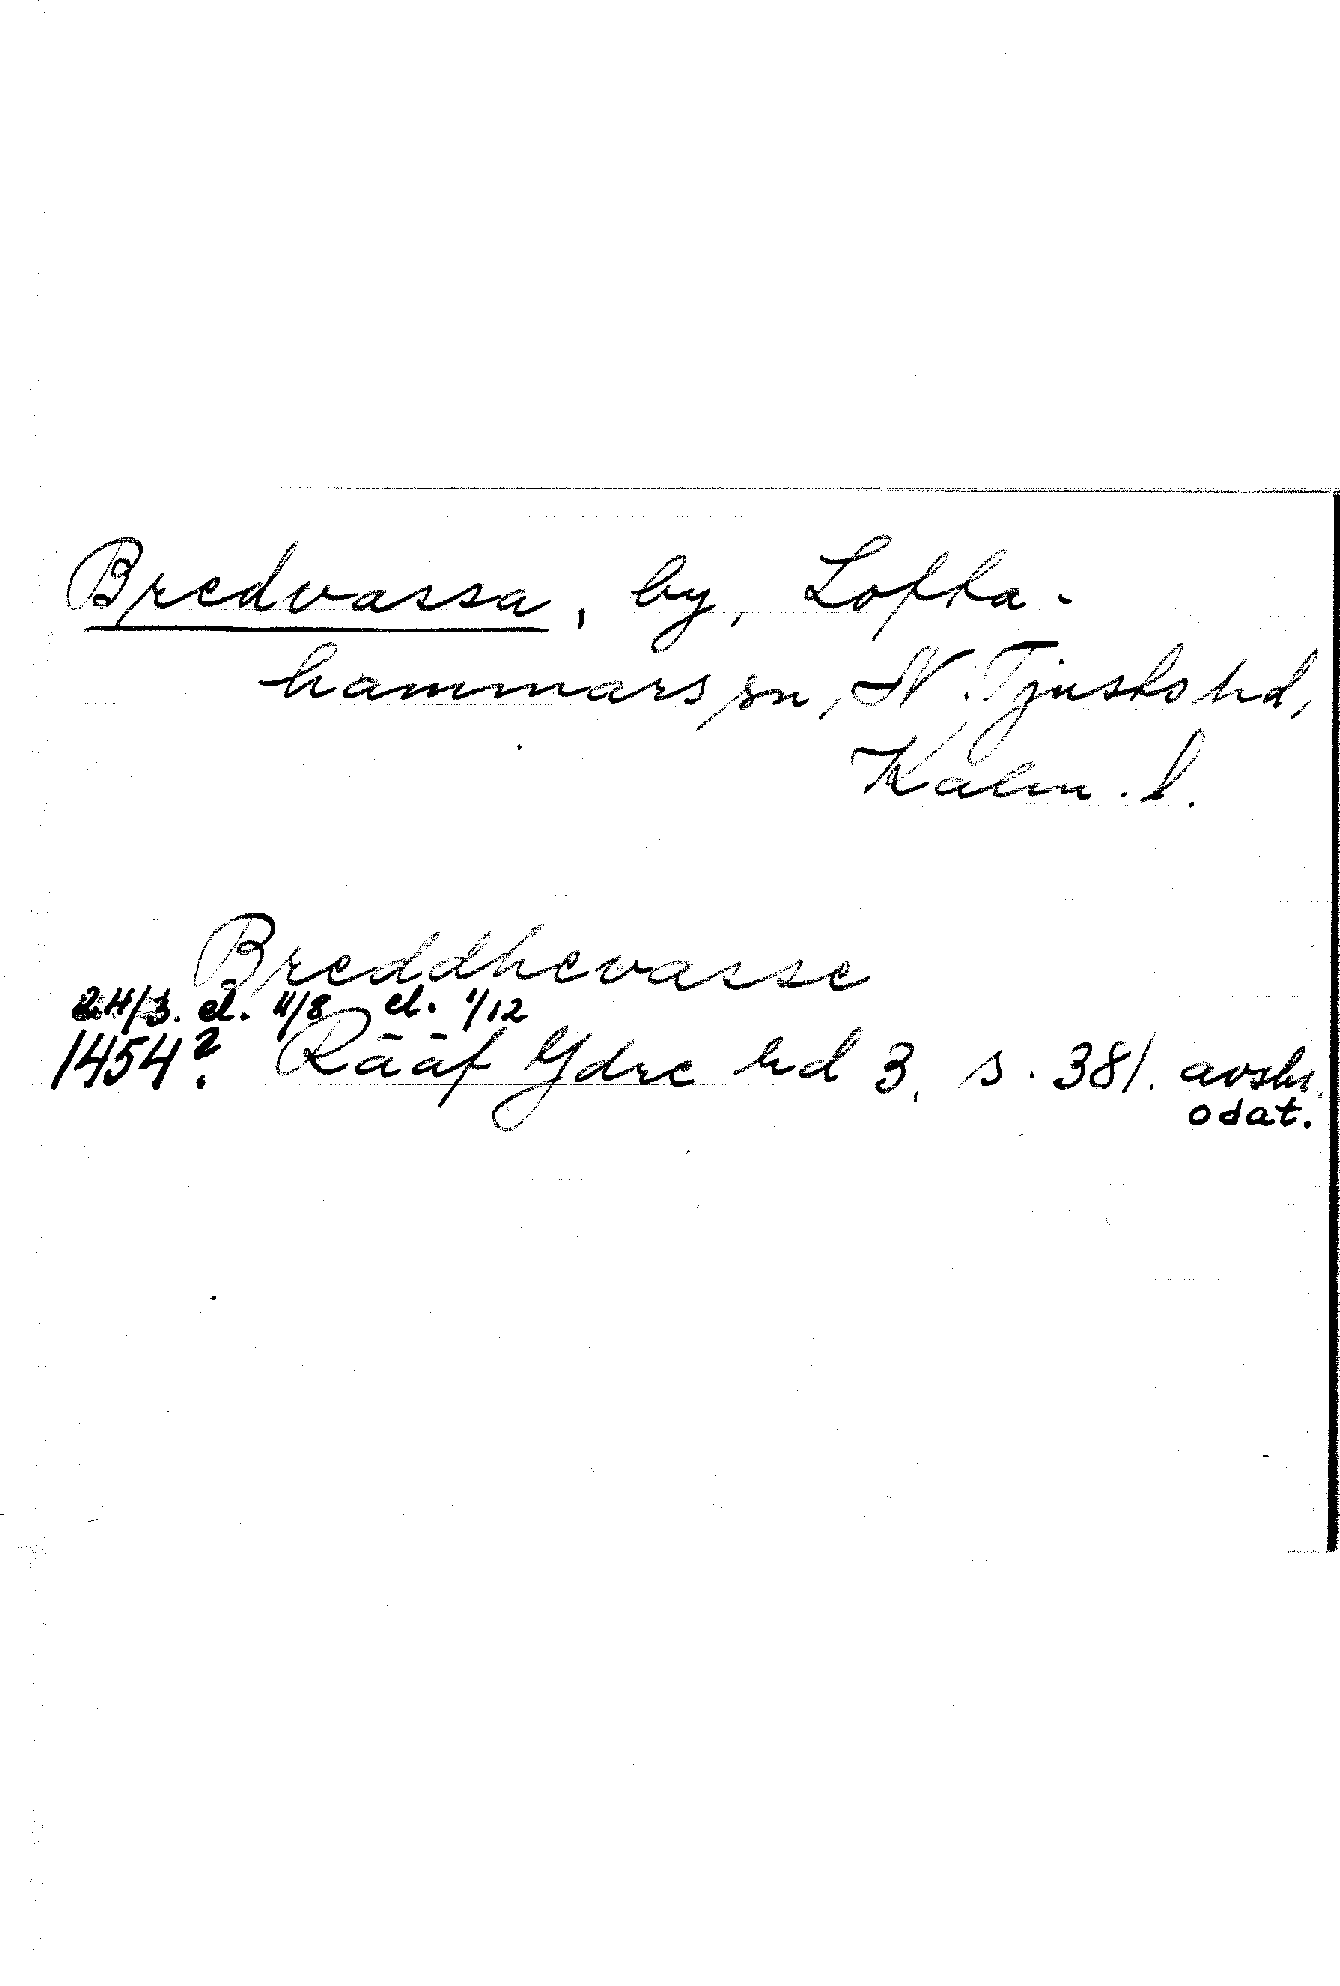 Bredvassa, by, Lofta-
hammars sn, N. Tjusts hd,
Kalm. l.
Breddhevasse
24/3. el. 11/8 el. 1/12
1454? Rääf Ydre hd 3, s. 381. avskr.
odat.